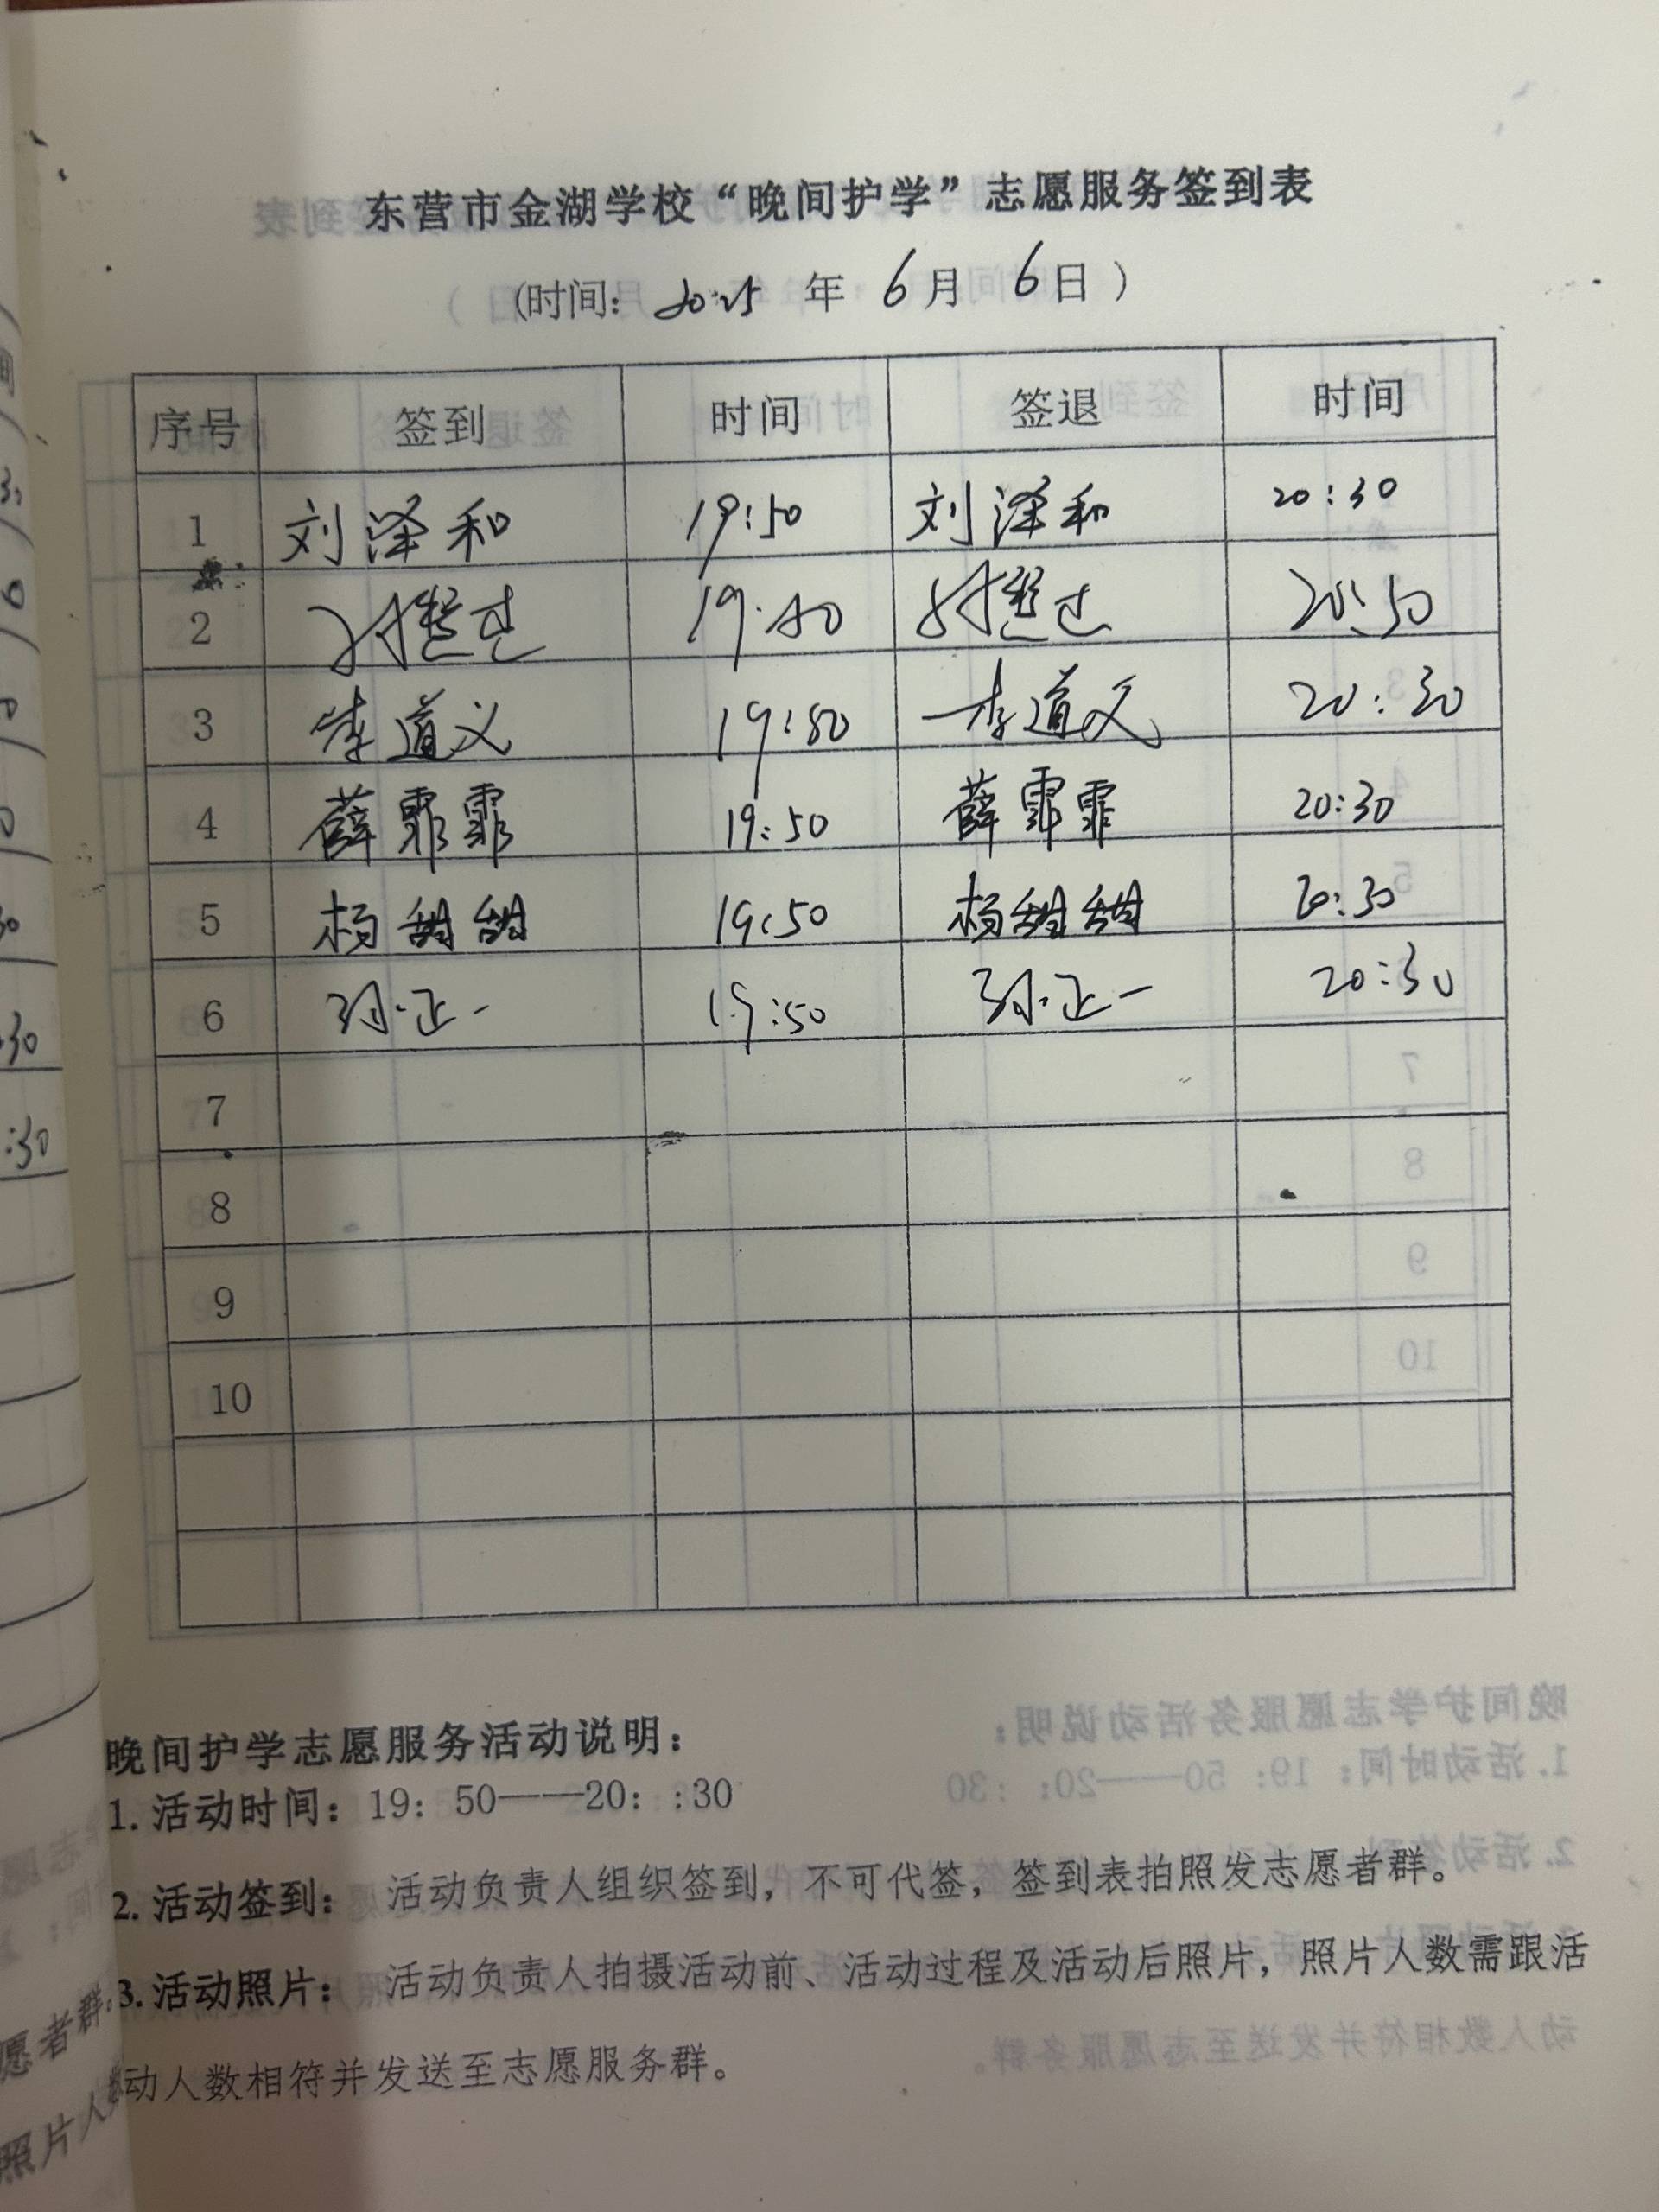 东营市金湖学校“晚间护学”志愿服务签到表
(时间: 2025 年 6月 6日 )
序号 签到 时间 签退 时间
1 刘泽和 19:50 刘泽和 20:30
2 20:50
3 李道义 19:50 李道义 20:30
4 薛霏霏 19:50 薛霏霏 20:30
5 杨甜甜 19:50 杨甜甜 20:30
6 孙正一 19:50 孙正一 20:30
7
8
9
10
晚间护学志愿服务活动说明：
1. 活动时间：19：50——20：:30
2. 活动签到： 活动负责人组织签到，不可代签，签到表拍照发志愿者群。
3. 活动照片： 活动负责人拍摄活动前、活动过程及活动后照片，照片人数需跟活
动人数相符并发送至志愿服务群。